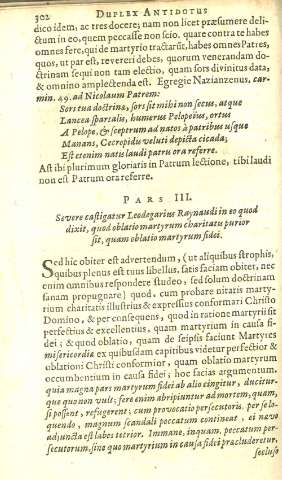 302 DUPLEX ANTIDOTUS
dico idem, ac tres docere; nam non licet præsumere deli-
ctum in eo, quem peccasse non scio. quare contra te habes
omnes fere, qui de martyrio tractarūt, habes omnes Patres,
quos, ut par est, revereri debes, quorum venerandam do-
ctrinam sequi non tam electio, quam sors divinitus data,
& omnino amplectenda est. Egregie Nazianzenus, car-
min. 49. ad Nicolaum Patrem:
Sors tua doctrina, sors sit mihi non secus, atque
Lancea spartalis, humerus Pelopeius, ortus
A Pelope, & sceptrum ad natos à patribus usque
Manans, Cecropidu veluti depicta cicada;
Est etenim natis laudi patru ora referre.
Ast ibi plurimum gloriaris in Patrum lectione, tibi laudi
non est Patrum ora referre.
PARS III.
Severe castigatur Leodegarius Raynaudi in eo quod
dixit, quod oblatio martyrum charitatis purior
sit, quam oblatio martyrum fidei.
Sed hic obiter est advertendum, (ut aliquibus strophis,
quibus plenus est tuus libellus, satis faciam obiter, nec
enim omnibus respondere studeo, sed solum doctrinam
sanam propugnare) quod, cum probare nitaris marty-
rium charitatis illustrius & expressius conformari Christo
Domino, & per consequens, quod in ratione martyrii sit
perfectius & excellentius, quam martyrium in causa fi-
dei; & quod oblatio, quam de seipsis faciunt Martyres
misericordiæ ex quibusdam capitibus videtur perfectior &
oblationi Christi conformior, quam oblatio martyrum
occumbentium in causa fidei; hoc facias argumentum.
quia magna pars martyrum fidei ab alio cingitur, ducitur-
que quo non vult; fere enim abripiuntur ad mortem, quam,
si possent, refugerent; cum provocatio persecutoris, per se lo-
quendo, magnum scandali peccatum contineat, ei navo
adjuncta est labes tetrior. Immane, inquam, peccatum per-
secutorum, sine quo martyrium in causa fidei præcluderetur,
seclusō